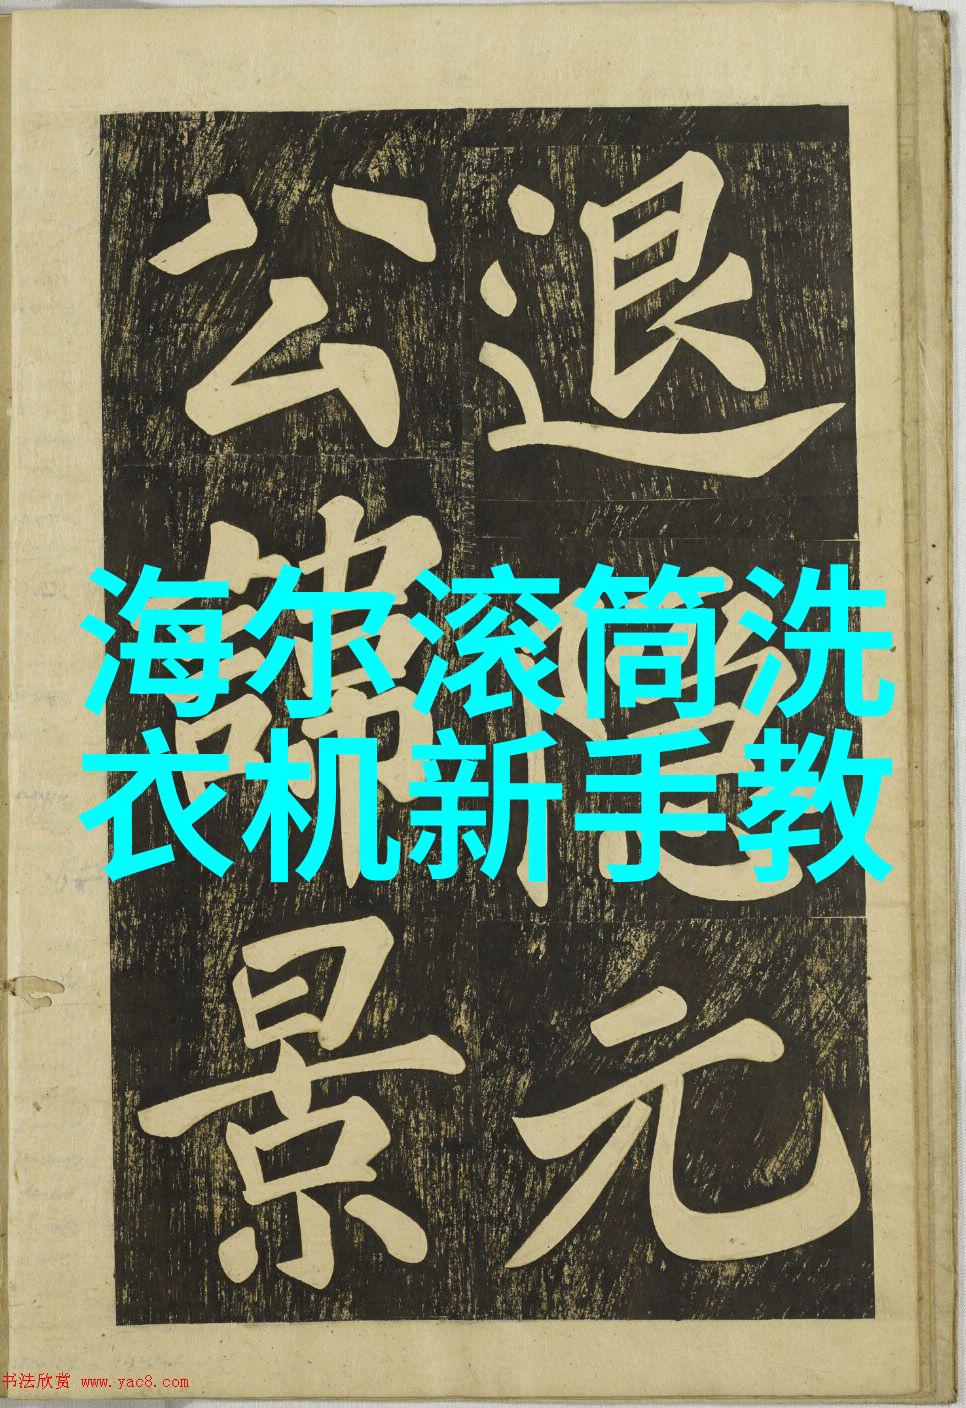 退元
公諱景
海尔滚筒洗
衣机新手教
书法欣赏 www.yac8.com